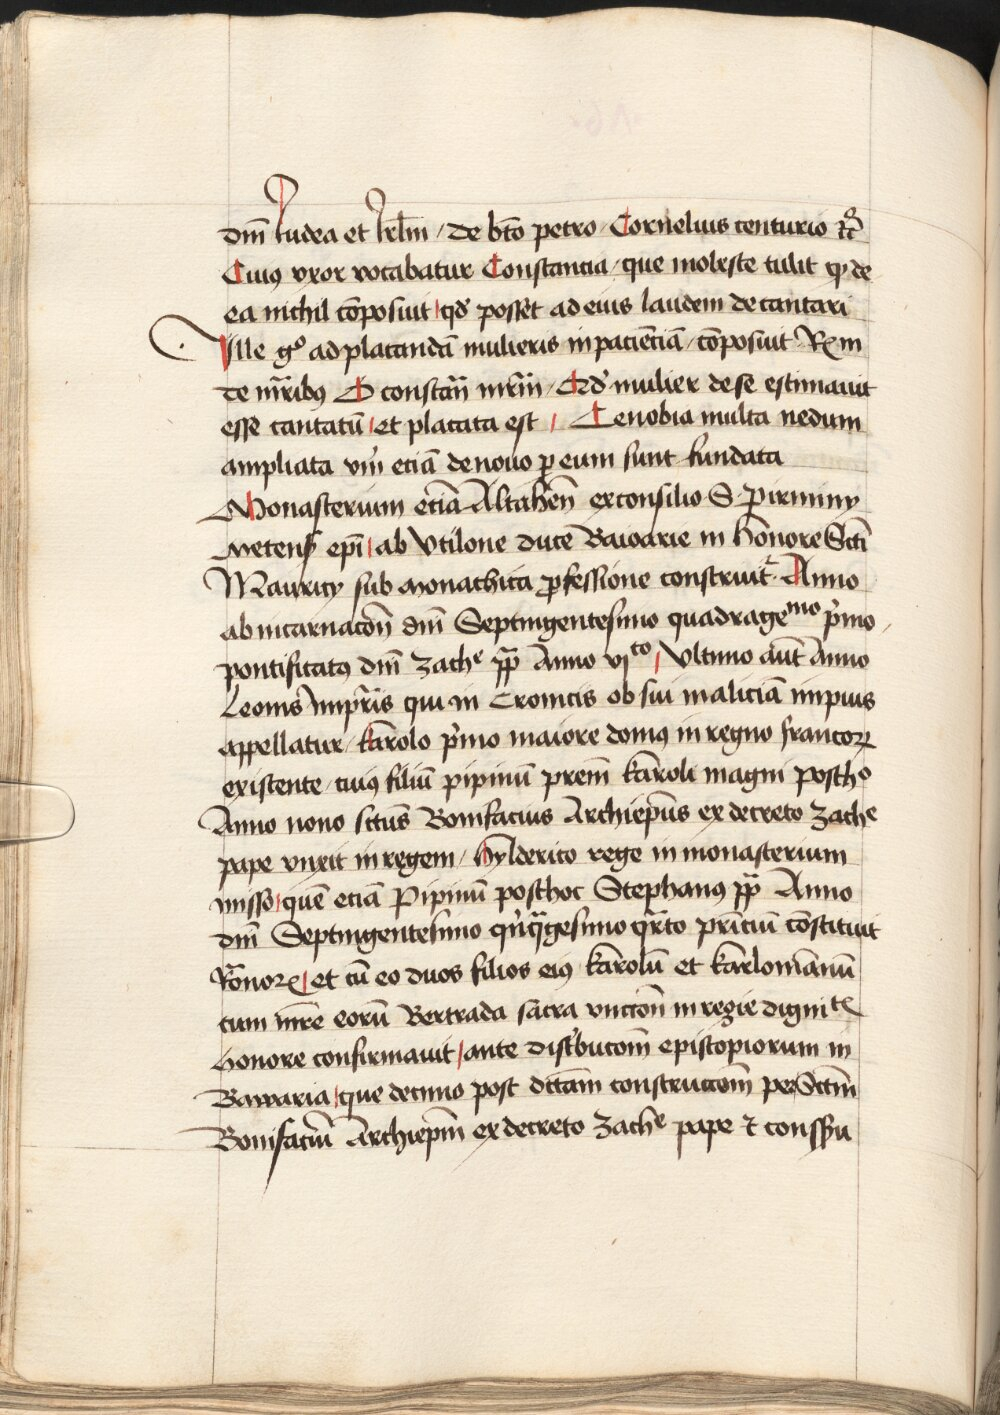 dm̄ Iudea et Irl̄m / de bt̄o petro / Cornelius centurio ⁊c̄
Cuius vxor vocabatur Constancia / que moleste tulit qꝫ de
ea nichil cōposuit / qd̓ posset ad eius laudem decantari
Ille gͦ ad placandā mulieris inpacienciā / cōposuit Rm̄
de mr̄ibꝰ O constan̄ mr̄m̄ / Qd̓ mulier de se estimauit
esse cantatū / et placata est / Cenobia multa nedum
ampliata vm̄ eciā de nouo ꝑ eum sunt fundata
Monasterium eciā Altahen̄ ex consilio S. Pirminy
Metens̄ epī / ab Vtilone duce Bawarie in honore Scti
Mauricy sub monachica ꝓfessione construit᷑ Anno
ab incarnacōn̄ dm̄ Septingentesimo quadrageᵐᵒ p̓mo
pontificatꝰ dm̄ Zachᵉ pp̄ Anno vjᵗᵒ / Vltimo aūt Anno
Leonis Imꝑris qui in Cronicis ob sui maliciā impius
appellatur / karolo p̓mo maiore domꝰ in regno francoꝝ
existente / cuiꝰ filiū pipinū prem̄ karoli magni posthͦ
Anno nono sctus̄ Bonifacius Archiepūs ex decreto Zachᵉ
pape vnxit in regem / hylderico rege in monasterium
misso / quē eciā Pipinū posthoc Stephanꝰ pp̄ Anno
dm̄ Septingentesimo qn̓qᷓgesimo qrͣto prīciū cōstituit
Rōnoꝝ / et cū eo duos filios eiꝰ karolū et karlomānū
cum mr̄e eorū Bertrada sacra vnccōn̄ in regie digniᵗꝭ
honore confirmauit / ante dist̓bucōm̄ epistopiorum in
Bawaria / que decimo post dctam̄ construccōm̄ per Sctm̄
Bonifaciū Archiepm̄ ex decreto Zachᵉ pape ⁊ consssu